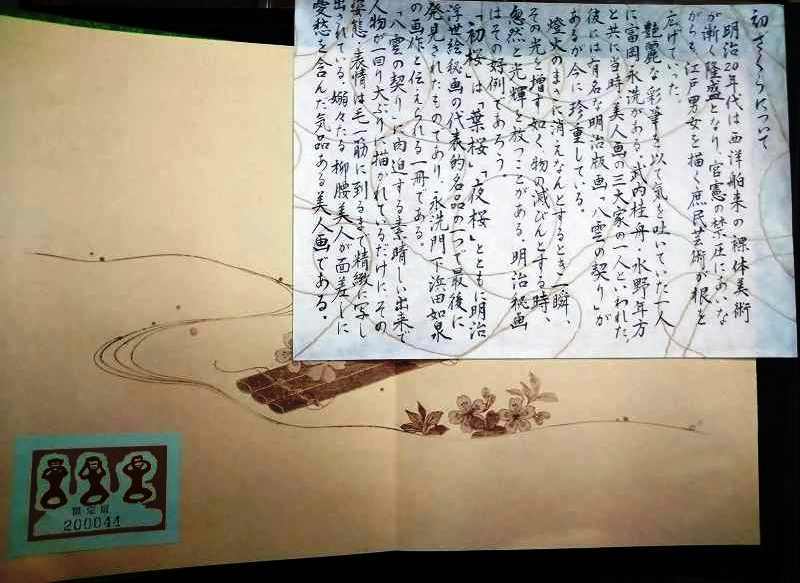 初さくらについて
明治20年代は西洋舶来の裸体美術
が漸く隆盛となり、官憲の禁圧にあいな
がらも、江戸男女を描く庶民芸術が根を
広げていった。
艶麗な彩筆を以て気を吐いていた一人
に富岡永洗がある。武内桂舟、水野年方
と共に当時、美人画の三大家の一人といわれた。
彼には有名な明治版画「八雲の契り」が
あるが今に珍重している。
燈火のまさに消えなんとするとき一瞬、
その光を増す如く、物の滅びんとする時、
忽然と光輝を放つことがある。明治秘画
はその好例であろう。
「初桜」は「葉桜」「夜桜」とともに明治
浮世絵秘画の代表的名品の一つで最後に
発見されたものであり、永洗門下浜田如泉
の画作と伝えられる一冊である。
「八雲の契り」に肉迫する素晴しい出来で
人物が一回り大ぶりに描かれているだけに、その
姿態・表情は毛一筋に到るまで精緻に写し
出されている。嫋々たる柳腰美人が面差しに
愛愁を含んだ気品ある美人画である。
限定版
200044